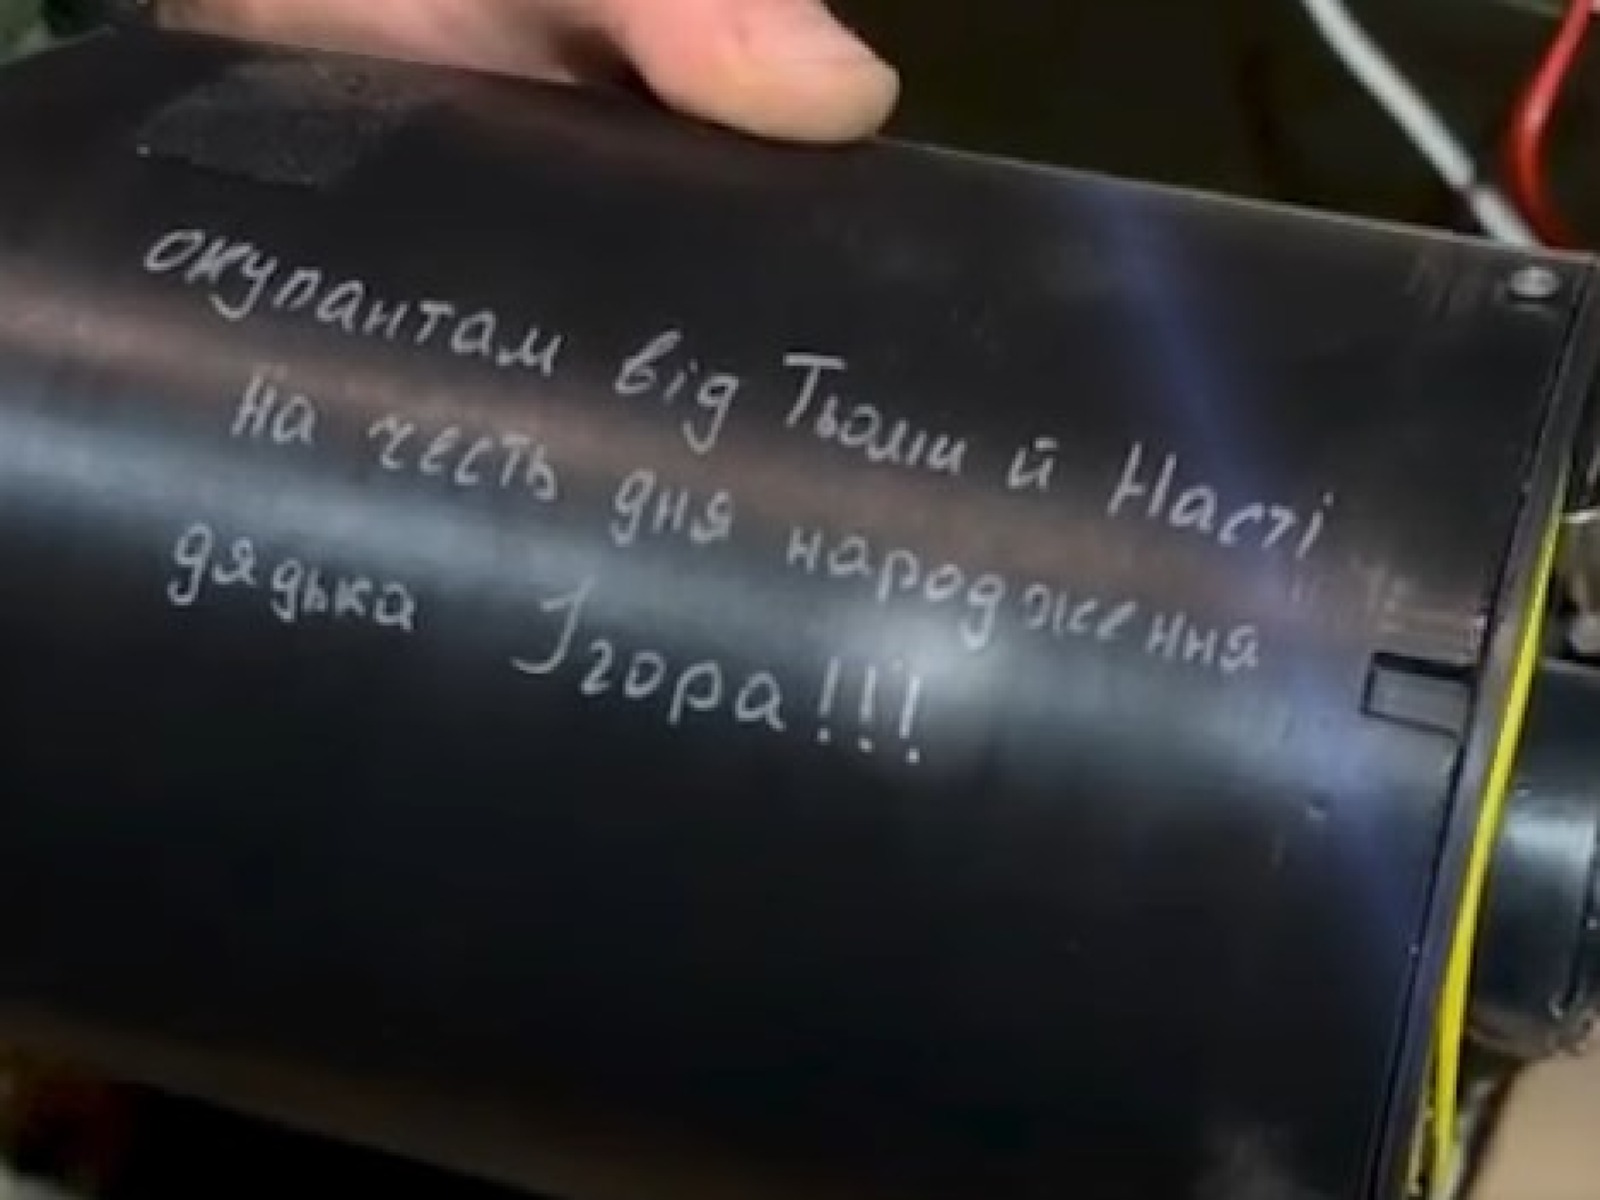 окупантам від Тьоми й Насті
на честь дня народження
дядька Ігора!!!